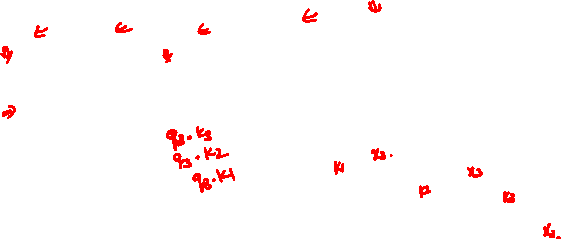 q3 · k3
q3 · k2
q3 · k1
k1
x3 ·
k2
x3
k3
x3